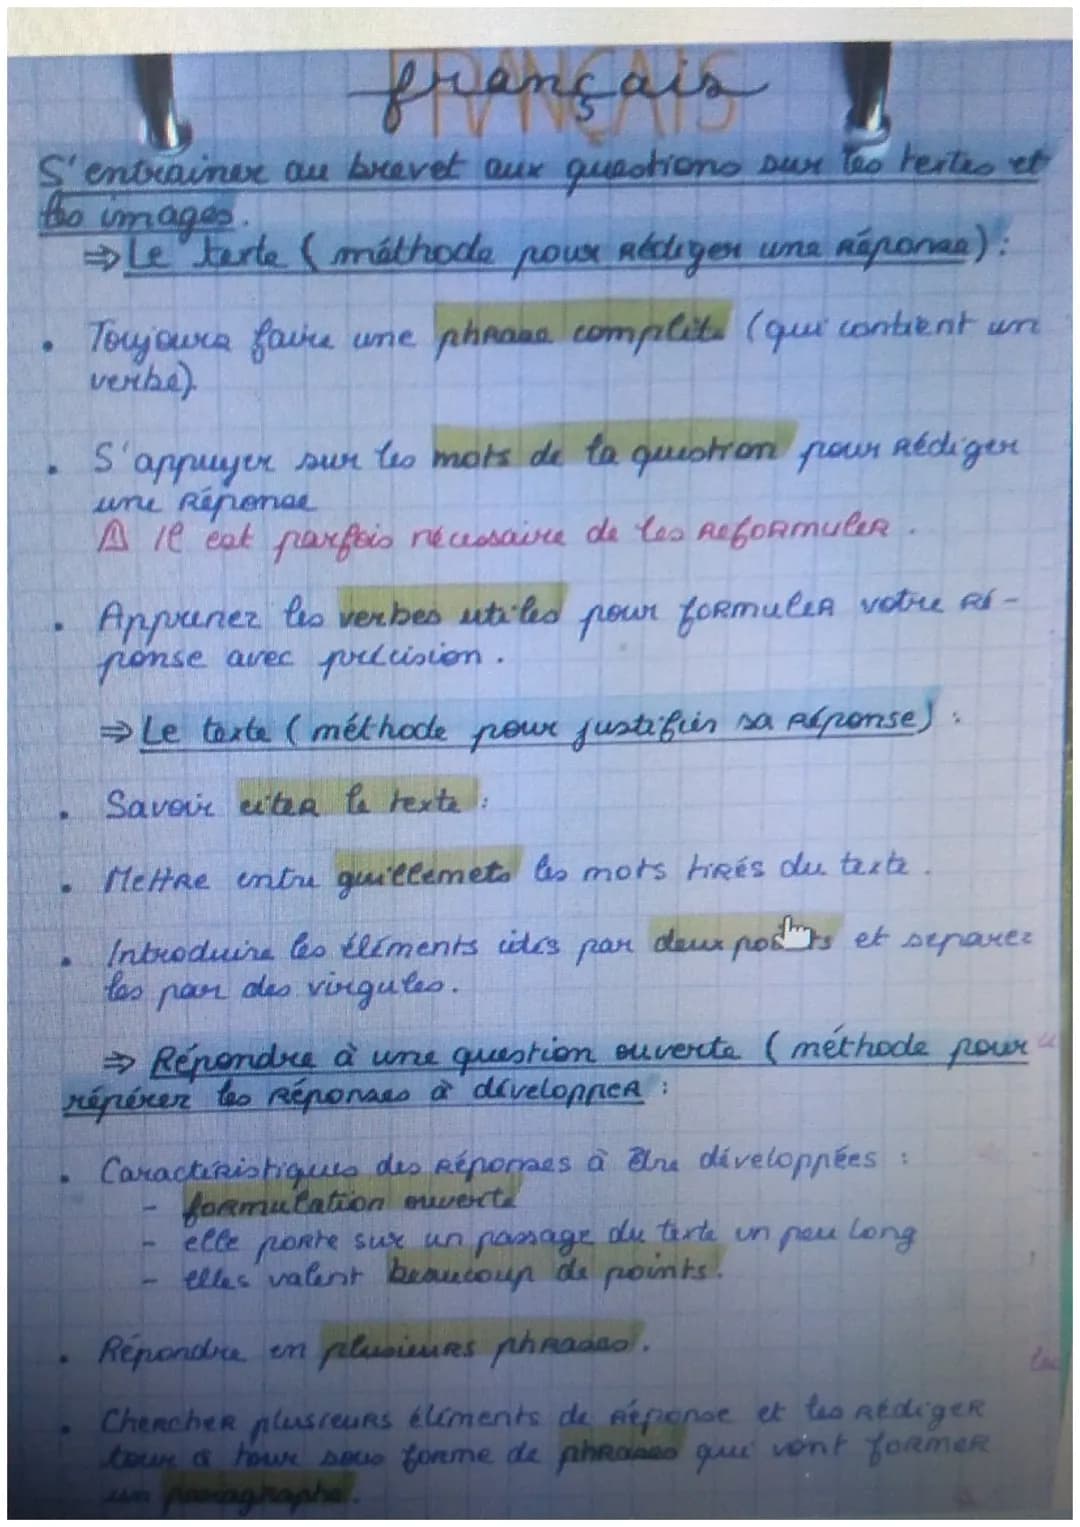 FRANÇAIS
français
S'entrainer au brevet aux questions sur les textes et
les images.
⇒ Le texte (méthode pour rédiger une réponse) :
• Toujours faire une phrase complète (qui contient un
verbe).
• S'appuyer sur les mots de la question pour rédiger
une réponse
⚠ il est parfois nécessaire de les reformuler.
• Apprenez les verbes utiles pour formuler votre ré-
ponse avec précision.
⇒ Le texte (méthode pour justifier sa réponse) :
• Savoir citer le texte :
• Mettre entre guillemets les mots tirés du texte.
• Introduire les éléments cités par deux points et séparez
les par des virgules.
⇒ Répondre à une question ouverte (méthode pour
répérer les réponses à développer :
• Caractéristiques des réponses à être développées :
- formulation ouverte
- elle porte sur un passage du texte un peu long
- elles valent beaucoup de points.
• Répondre en plusieurs phrases.
• Chercher plusieurs éléments de réponse et les rédiger
tour à tour sous forme de phrases qui vont former
un paragraphe.